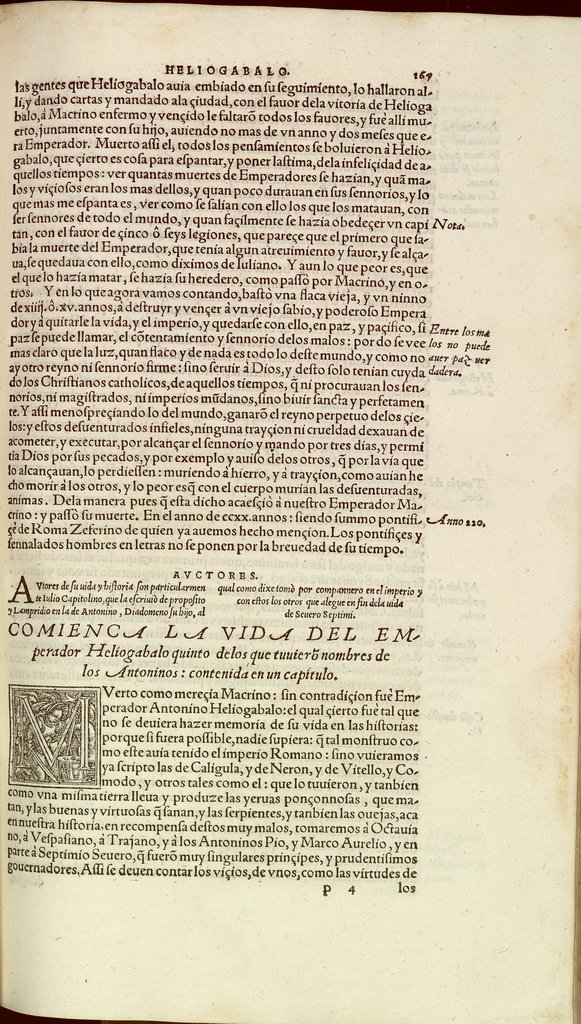 HELIOGABALO. 167
las gentes que Heliogabalo auia embiado en su seguimiento, lo hallaron al-
li, y dando cartas y mandado ala çiudad, con el fauor dela vitoria de Helioga
balo, à Macrino enfermo y vençido le faltarõ todos los fauores, y fue alli mu-
erto, juntamente con su hijo, auiendo no mas de vn anno y dos meses que e-
ra Emperador. Muerto assi el, todos los pensamientos se boluieron à Helio-
gabalo, que çierto es cosa para espantar, y poner lastima, dela infeliçidad de a-
quellos tiempos: ver quantas muertes de Emperadores se hazian, y quã ma-
los y viçiosos eran los mas dellos, y quan poco durauan en sus sennorios, y lo
que mas me espanta es, ver como se salian con ello los que los matauan, con
ser sennores de todo el mundo, y quan façilmente se hazia obedeçer vn capi Nota.
tan, con el fauor de çinco ô seys legiones, que pareçe que el primero que sa-
bia la muerte del Emperador, que tenia algun atreuimiento y fauor, y se alça-
ua, se quedaua con ello, como diximos de Iuliano. Y aun lo que peor es, que
el que lo hazia matar, se hazia su heredero, como passò por Macrino, y en o-
tros. Y en lo que agora vamos contando, bastò vna flaca vieja, y vn ninno
de xiiij. ô. xv. annos, à destruyr y vençer à vn viejo sabio, y poderoso Empera
dor y à quitarle la vida, y el imperio, y quedarse con ello, en paz, y paçifico, si Entre los ma
paz se puede llamar, el cõtentamiento y sennorio delos malos: por do se vee los no puede
mas claro que la luz, quan flaco y de nada es todo lo deste mundo, y como no auer paz ver
ay otro reyno ni sennorio firme: sino seruir à Dios, y desto solo tenian cuyda dadera.
do los Christianos catholicos, de aquellos tiempos, q̃ ni procurauan los sen-
norios, ni magistrados, ni imperios mũdanos, sino biuir sancta y perfetamen
te. Y assi menospreçiando lo del mundo, ganarõ el reyno perpetuo delos çie-
los: y estos desuenturados infieles, ninguna trayçion ni crueldad dexauan de
acometer, y executar, por alcançar el sennorio y mando por tres dias, y permi
tia Dios por sus pecados, y por exemplo y auiso delos otros, q̃ por la via que
lo alcançauan, lo perdiessen: muriendo à hierro, y à trayçion, como auian he
cho morir à los otros, y lo peor esq̃ con el cuerpo murian las desuenturadas,
animas. Dela manera pues q̃ esta dicho acaesçiò à nuestro Emperador Ma-
crino: y passò su muerte. En el anno de ccxx. annos: siendo summo pontifi- Anno 220.
çe de Roma Zeferino de quien ya auemos hecho mençion. Los pontifiçes y
sennalados hombres en letras no se ponen por la breuedad de su tiempo.
AVCTORES.
AVtores de su vida y historia son particularmen
te Iulio Capitolino, que la escriuiò de proposito
y Lampridio en la de Antonino, Diadomeno su hijo, al
qual como dixe tomò por compannero en el imperio y
con estos los otros que alegue en fin dela vida
de Seuero Septimi.
COMIENCA LA VIDA DEL EM-
perador Heliogabalo quinto delos que tuuierõ nombres de
los Antoninos: contenida en un capitulo.
MVerto como mereçia Macrino: sin contradiçion fuè Em-
perador Antonino Heliogabalo: el qual çierto fuè tal que
no se deuiera hazer memoria de su vida en las historias:
porque si fuera possible, nadie supiera: q̃ tal monstruo co-
mo este auia tenido el imperio Romano: sino vuieramos
ya scripto las de Caligula, y de Neron, y de Vitello, y Co-
modo, y otros tales como el: que lo tuuieron, y tanbien
como vna misma tierra lleua y produze las yeruas ponçonnosas, que ma-
tan, y las buenas y virtuosas q̃ sanan, y las serpientes, y tanbien las ouejas, aca
en nuestra historia, en recompensa destos muy malos, tomaremos à Octauia
no, à Vespasiano, à Trajano, y à los Antoninos Pio, y Marco Aurelio, y en
parte à Septimio Seuero, q̃ fuerõ muy singulares prinçipes, y prudentissimos
gouernadores, Assi se deuen contar los viçios, de vnos, como las virtudes de
p 4 los